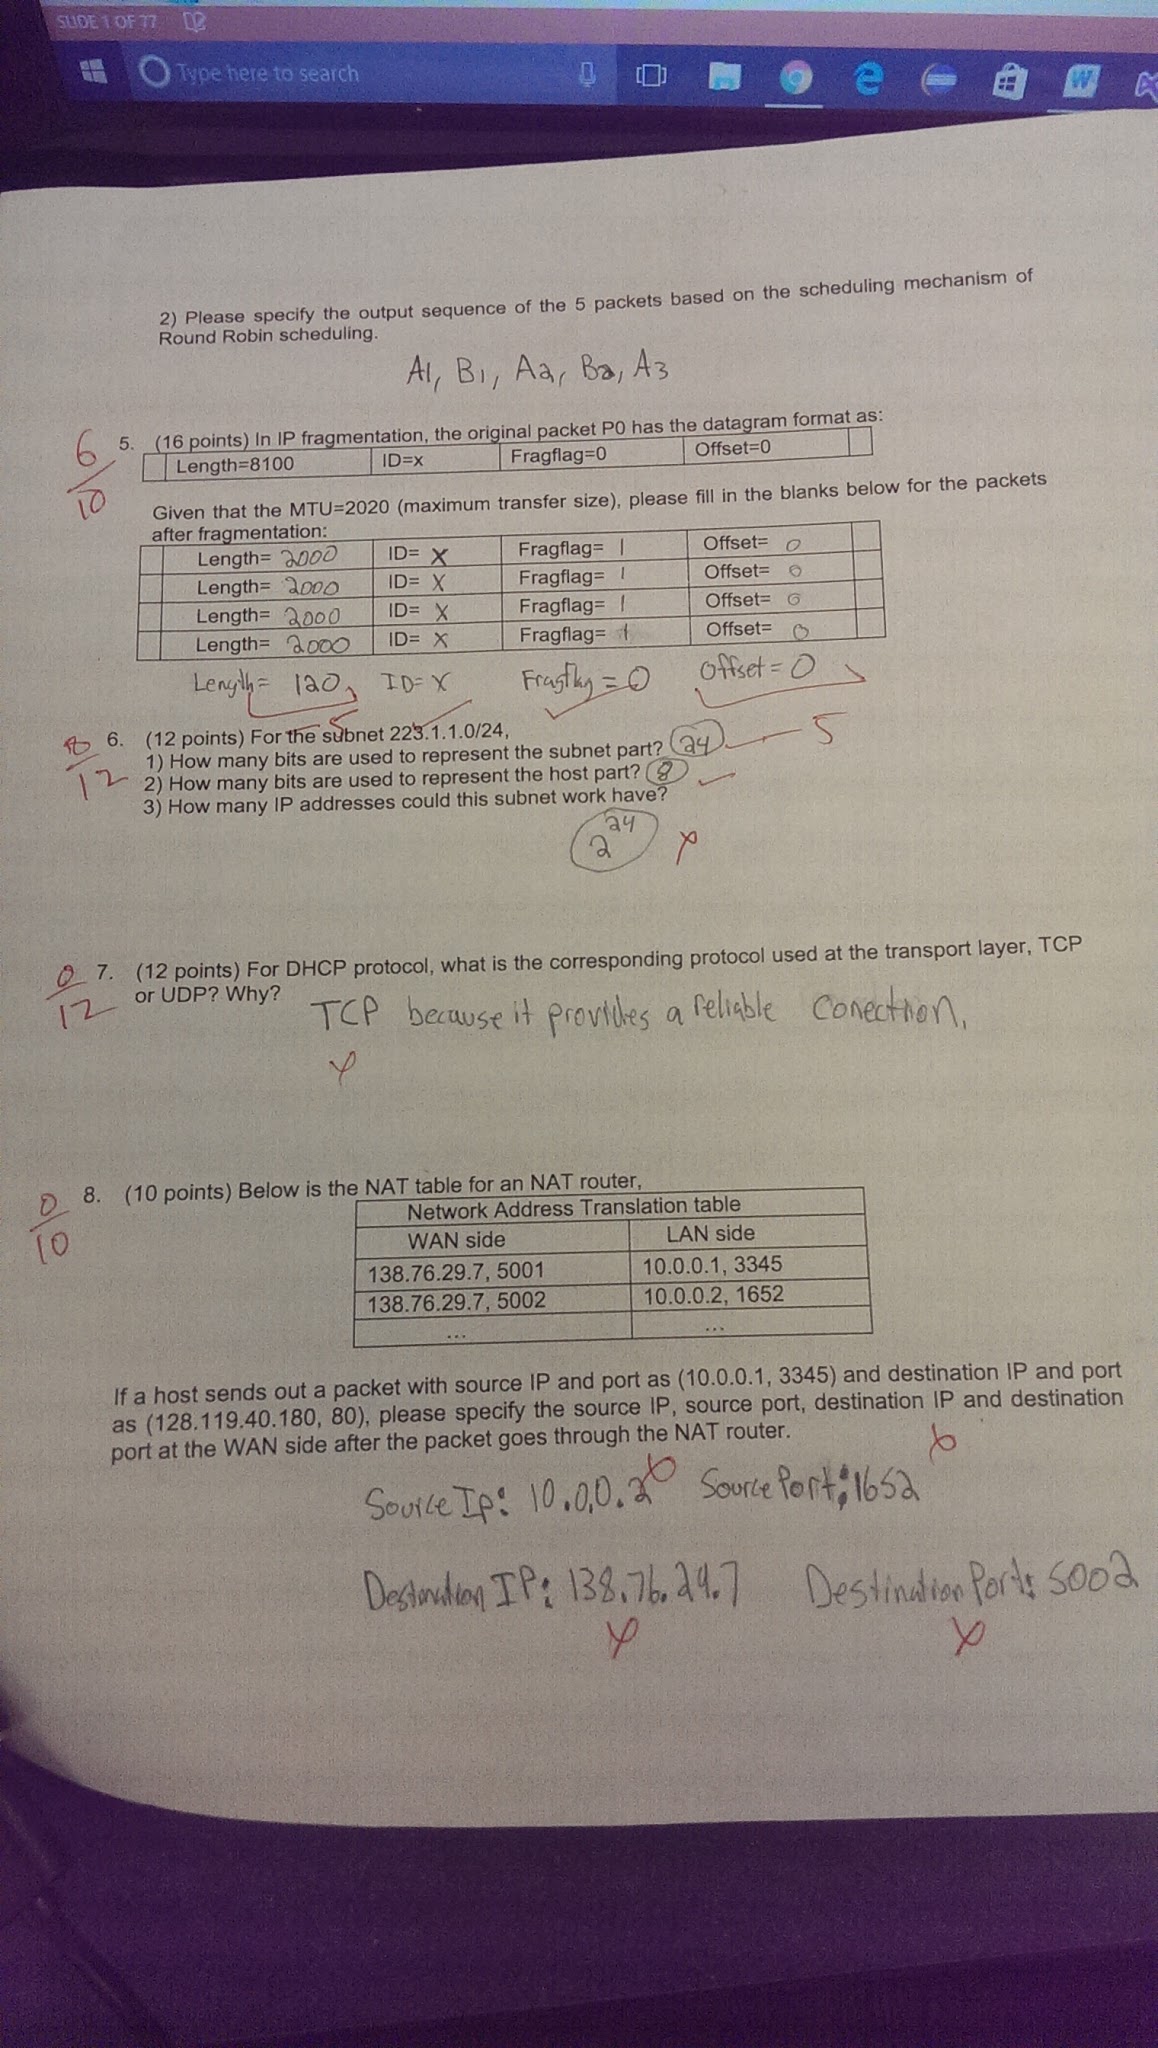 SLIDE 1 OF 77
Type here to search
2) Please specify the output sequence of the 5 packets based on the scheduling mechanism of
Round Robin scheduling.
A1, B1, A2, B2, A3
6/10
5. (16 points) In IP fragmentation, the original packet P0 has the datagram format as:
Length=8100 ID=x Fragflag=0 Offset=0
Given that the MTU=2020 (maximum transfer size), please fill in the blanks below for the packets
after fragmentation:
Length= 2000 ID= X Fragflag= 1 Offset= 0
Length= 2000 ID= X Fragflag= 1 Offset= 0
Length= 2000 ID= X Fragflag= 1 Offset= 0
Length= 2000 ID= X Fragflag= 1 Offset= 0
Length= 120, ID= X Fragflag = 0 Offset = 0
-5
/12
6. (12 points) For the subnet 223.1.1.0/24,
1) How many bits are used to represent the subnet part? 24 5
2) How many bits are used to represent the host part? 8
3) How many IP addresses could this subnet work have?
2^24 x
0/12
7. (12 points) For DHCP protocol, what is the corresponding protocol used at the transport layer, TCP
or UDP? Why?
TCP because it provides a reliable Conection.
x
0/10
8. (10 points) Below is the NAT table for an NAT router,
Network Address Translation table
WAN side LAN side
138.76.29.7, 5001 10.0.0.1, 3345
138.76.29.7, 5002 10.0.0.2, 1652
... ...
If a host sends out a packet with source IP and port as (10.0.0.1, 3345) and destination IP and port
as (128.119.40.180, 80), please specify the source IP, source port, destination IP and destination
port at the WAN side after the packet goes through the NAT router.
Source Ip: 10.0.0.2 Source Port: 1652
Destination IP: 138.76.29.7 Destination Port: 5002
x x